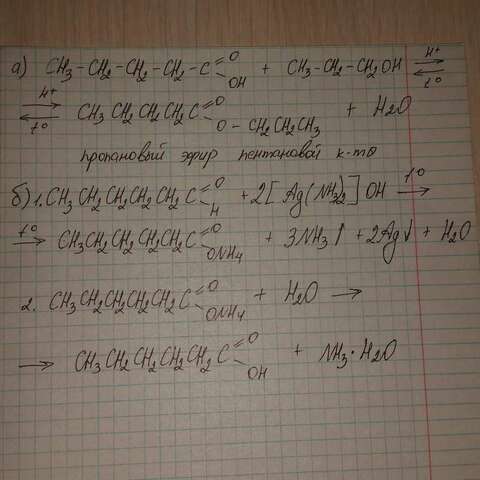 а) CH₃-CH₂-CH₂-CH₂-C=O OH + CH₃-CH₂-CH₂OH ⇄ H⁺ t°
⇄ H⁺ t° CH₃CH₂CH₂CH₂C=O O-CH₂CH₂CH₃ + H₂O
пропановый эфир пентановой к-ты
б) 1. CH₃CH₂CH₂CH₂CH₂C=O H + 2[Ag(NH₃)₂]OH t° →
t° → CH₃CH₂CH₂CH₂CH₂C=O ONH₄ + 3NH₃↑ + 2Ag↓ + H₂O
2. CH₃CH₂CH₂CH₂CH₂C=O ONH₄ + H₂O →
→ CH₃CH₂CH₂CH₂CH₂C=O OH + NH₃·H₂O